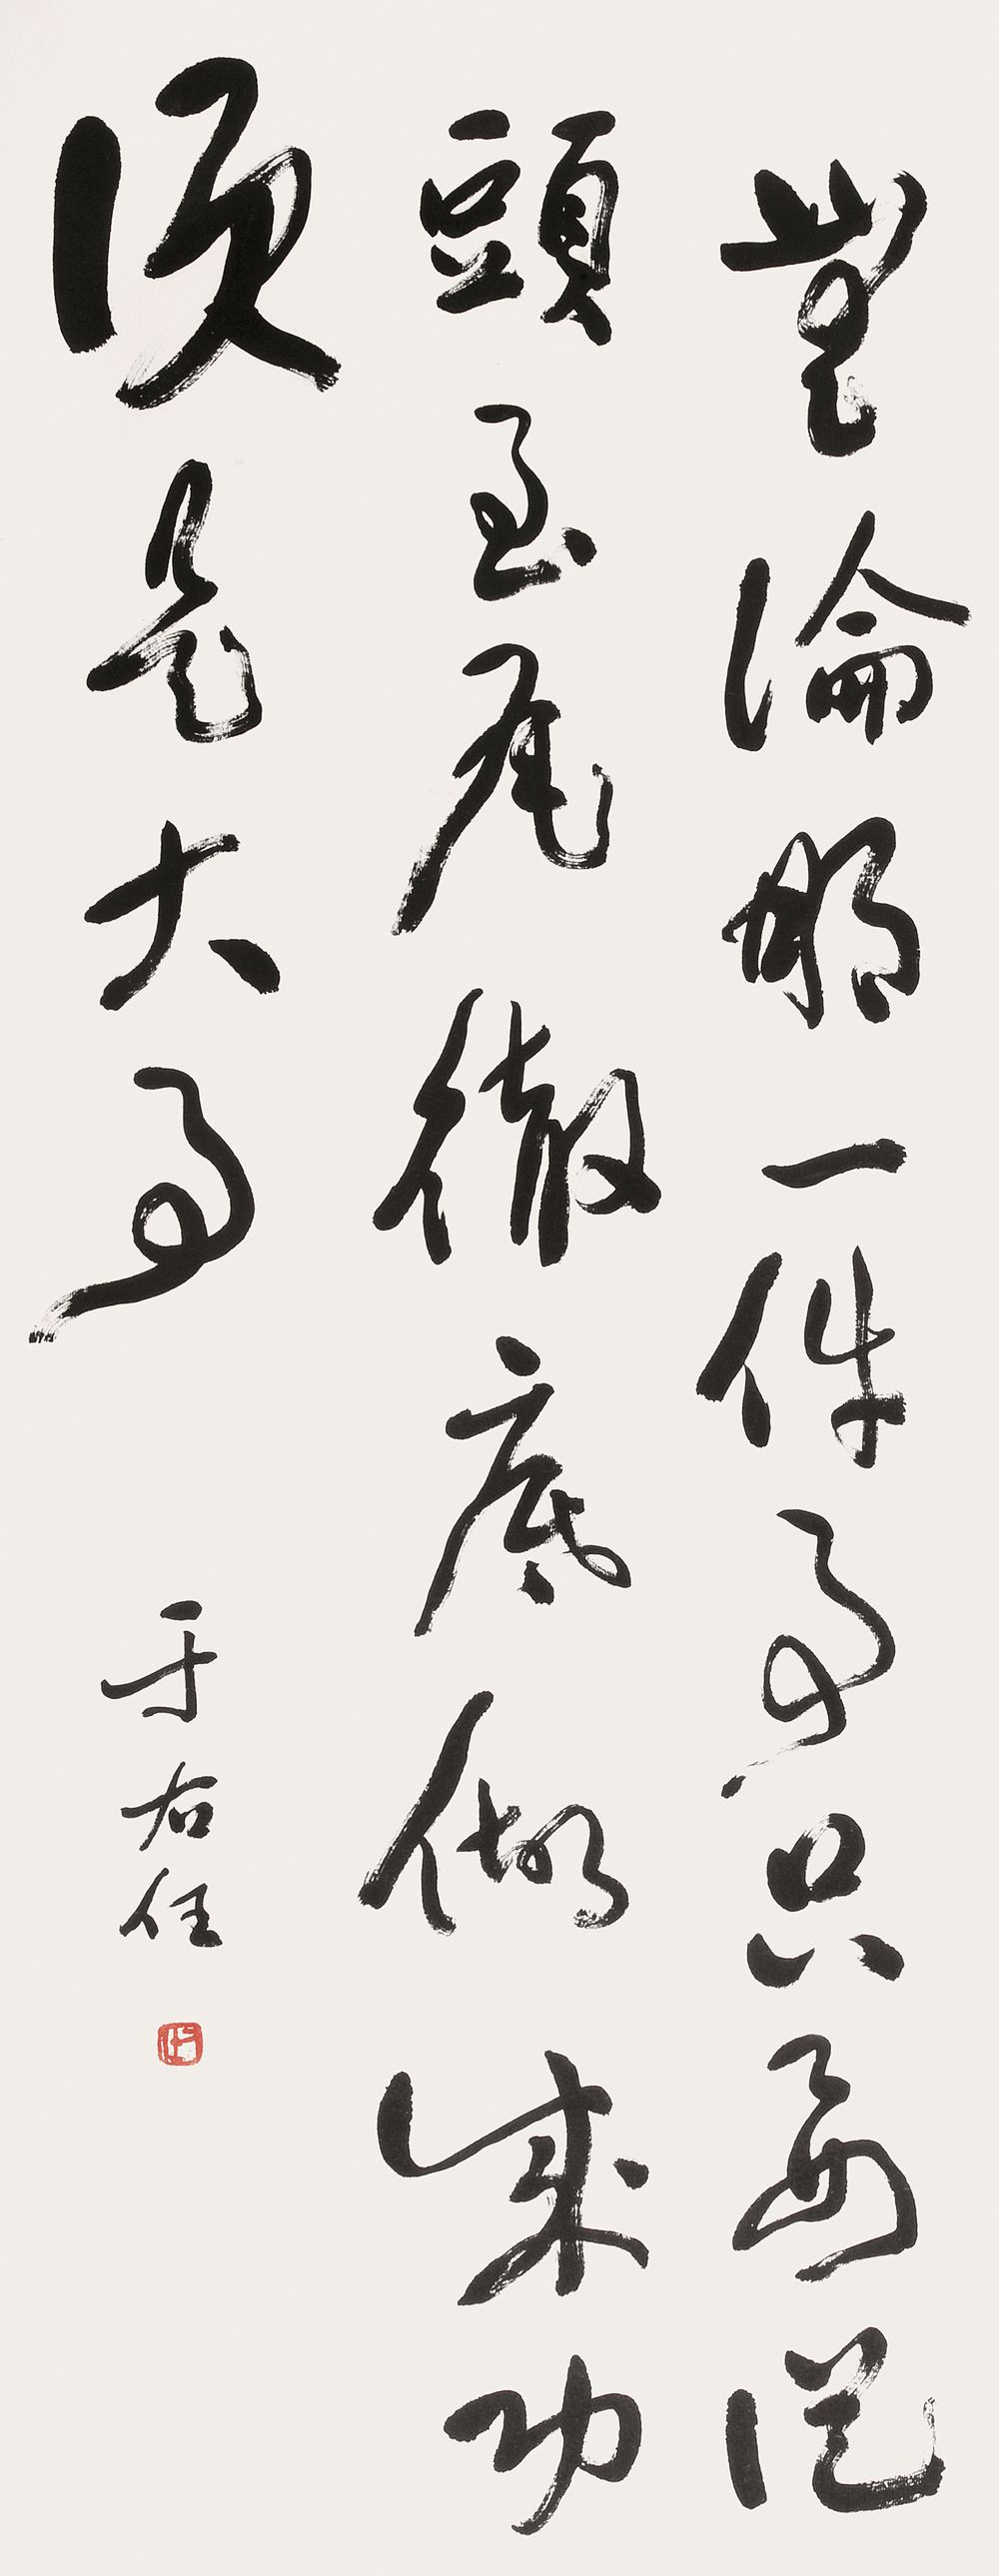 無論那一件事只要從
頭至尾徹底做成功
便是大事
于右任